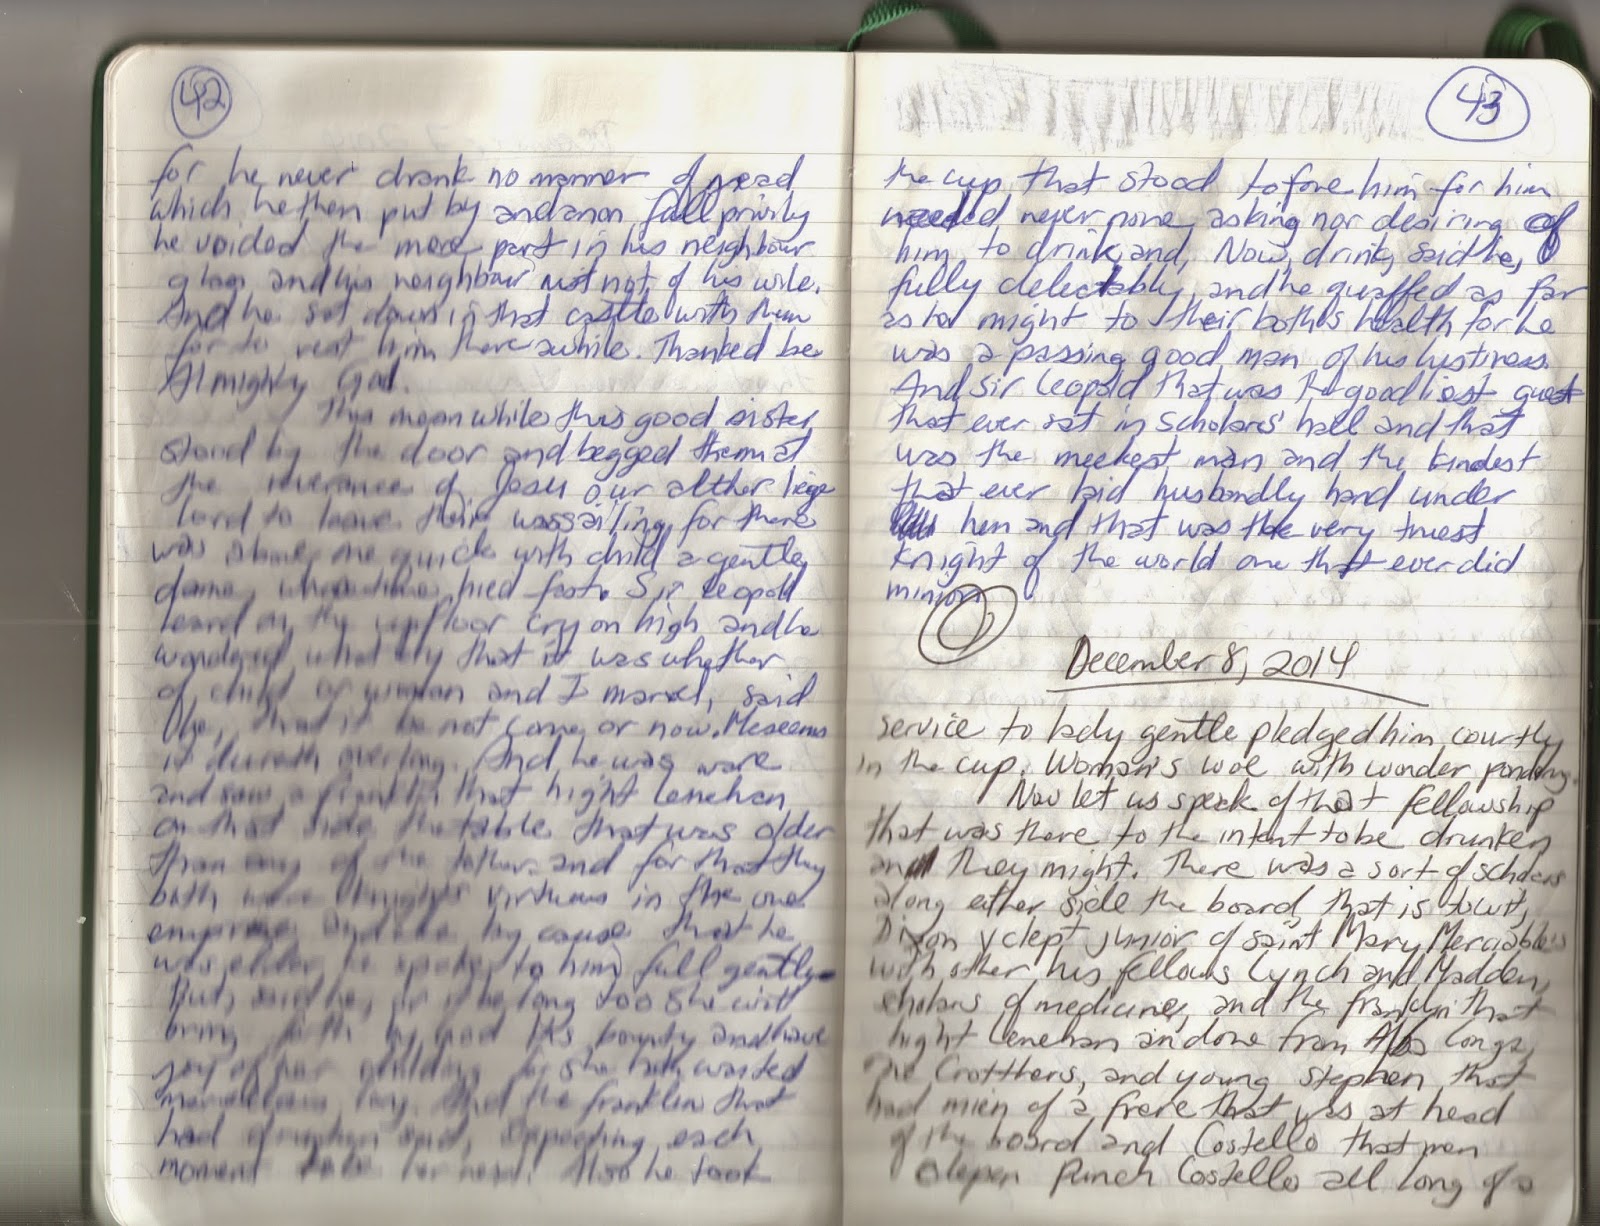 42
for he never drank no manner of mead
which he then put by and anon full privily
he voided the more part in his neighbour
glass and his neighbour nist not of his wile.
And he sat down in that castle with them
for to rest him there awhile. Thanked be
Almighty God.
This meanwhile this good sister
stood by the door and begged them at
the reverence of Jesu our alther liege
lord to leave their wassailing for there
was above one quick with child a gentle
dame, whose time hied fast. Sir Leopold
heard on the upfloor cry on high and he
wondered what cry that it was whether
of child or woman and I marvel, said
he, that it be not come or now. Meseems
it dureth overlong. And he was ware
and saw a franklin that hight Lenehan
on that side the table that was older
than any of the tother and for that they
both were knights virtuous in the one
emprise and eke by cause that he
was elder he spoke to him full gently.
But, said he, or it be long too she will
bring forth by God His bounty and have
joy of her childing for she hath waited
marvellous long. And the franklin that
had drunken said, Expecting each
moment to be her next. Also he took
43
the cup that stood tofore him for him
needed never none asking nor desiring of
him to drink and, Now drink, said he,
fully delectably, and he quaffed as far
as he might to their both's health for he
was a passing good man of his lustiness.
And Sir Leopold that was the goodliest guest
that ever sat in scholars' hall and that
was the meekest man and the kindest
that ever laid husbandly hand under
hen and that was the very truest
knight of the world one that ever did
minion
December 8, 2014
service to lady gentle pledged him courtly
in the cup. Woman's woe with wonder pondering.
Now let us speak of that fellowship
that was there to the intent to be drunken
an they might. There was a sort of scholars
along either side the board, that is to wit,
Dixon yclept junior of saint Mary Merciable's
with other his fellows Lynch and Madden,
scholars of medicine, and the franklin that
hight Lenehan and one from Alba Longa,
one Crotthers, and young Stephen that
had mien of a frere that was at head
of the board and Costello that men
clepen Punch Costello all long of a